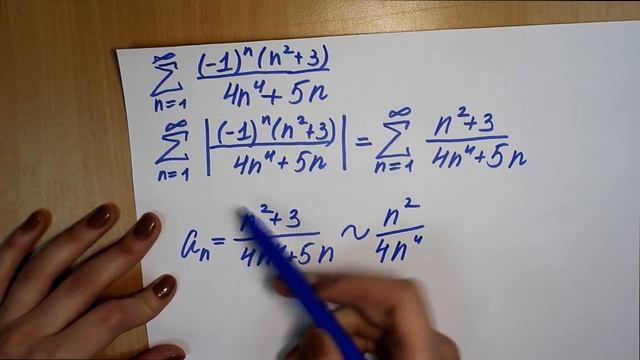 ∑_{n=1}^{∞} \frac{(-1)^n (n^2+3)}{4n^4+5n}
∑_{n=1}^{∞} |\frac{(-1)^n (n^2+3)}{4n^4+5n}| = ∑_{n=1}^{∞} \frac{n^2+3}{4n^4+5n}
a_n = \frac{n^2+3}{4n^4+5n} ~ \frac{n^2}{4n^4}